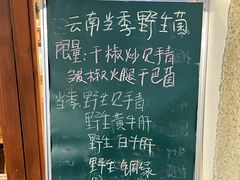 云南当季野生菌
限量:干椒炒见手青
皱椒火腿干巴菌
当季:野生见手青
野生黄牛肝
野生白牛肝
野生铜绿